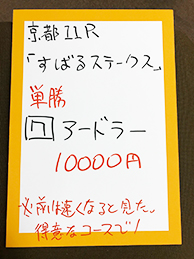 京都11R
「すばるステークス」
単勝
7 アードラー
10000円
必ず前は速くなると見た。
得意なコースで!